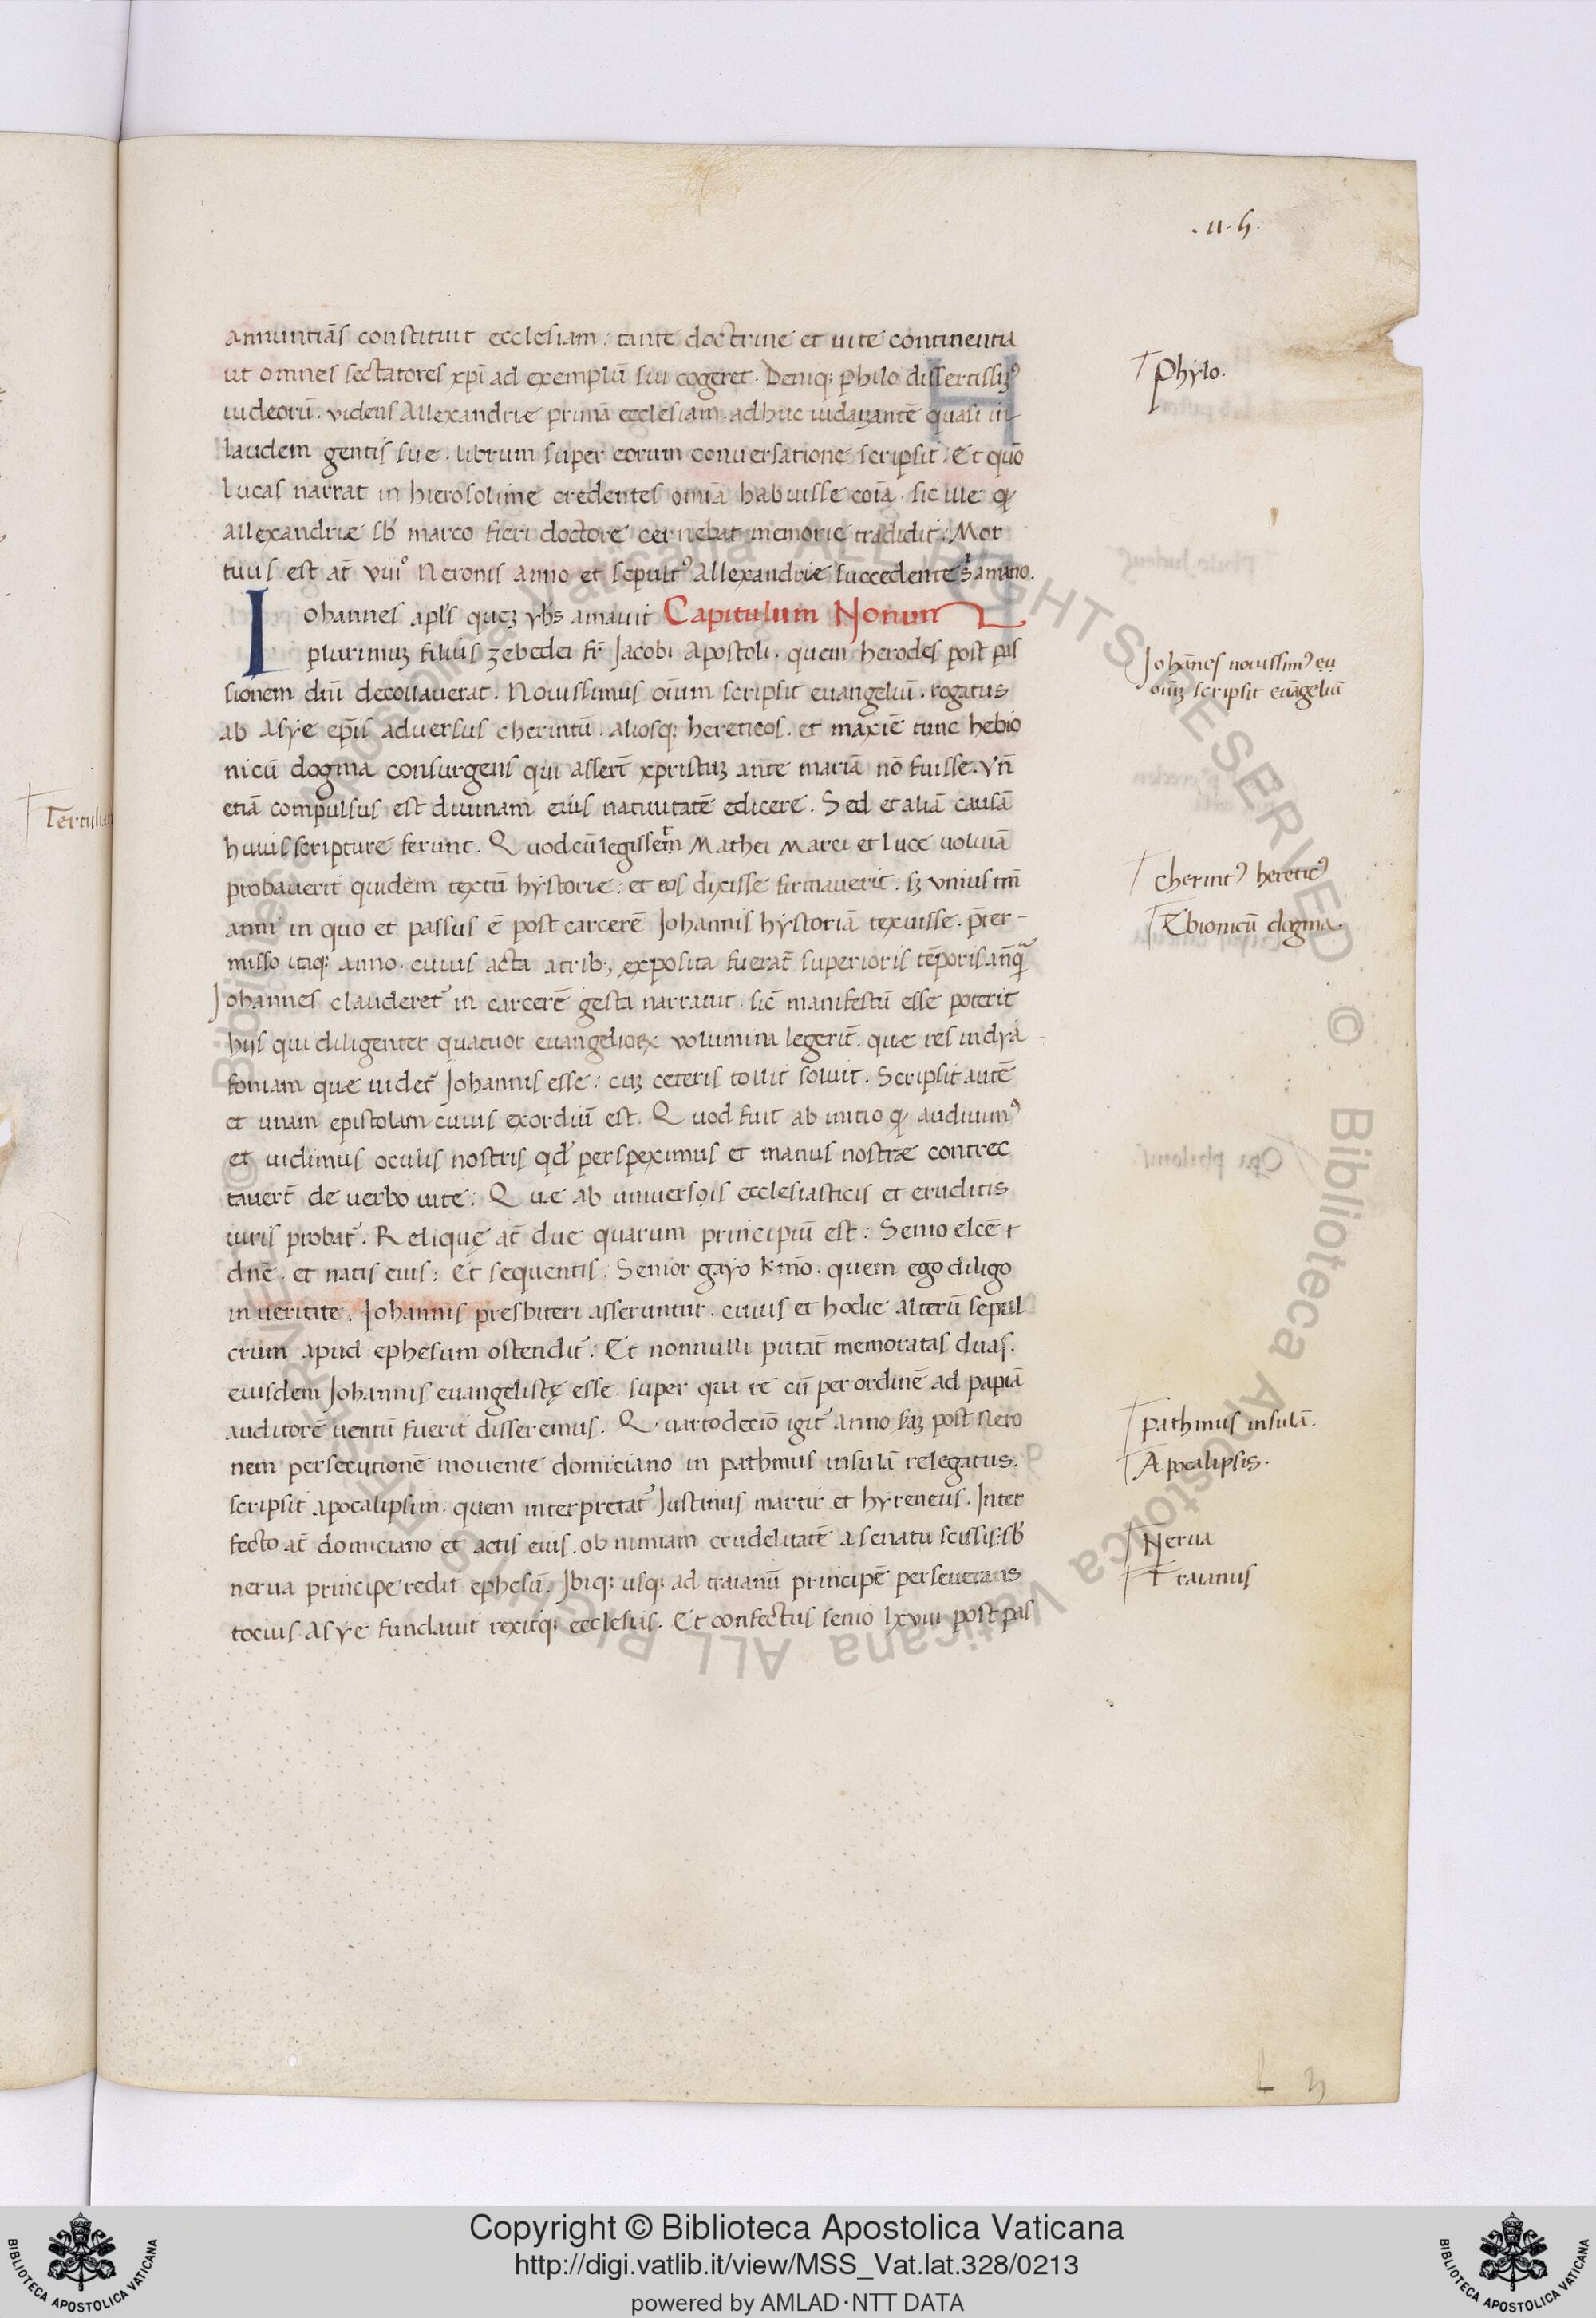 .u.h.
annuntiãs constituit ecclesiam: tante doctrine et uite continentia
ut omnes sectatores xp̃i ad exemplũ sui cogeret. Deniq; philo dissertissiꝫ⁹
iudeorũ. videns Allexandriæ primã ecclesiam. adhuc iudaizantẽ quasi in
laudem gentis sue. librum super eorum conuersatione scripsit. Et quõ
lucas narrat in hierosolime credentes omĩa habuisse coĩa. sic ille ꝙ
allexandriæ sb̃ marco fieri doctore cernebat memorie tradidit: Mor
tuus est at̃ viii° Neronis anno et sepult⁹ Allexandriæ succedente s̃ aniano.
Iohannes apl̃s queꝫ yh̃s amauit Capitulum Nonum
plurimuꝫ filius zebedei fr̃ Jacobi Apostoli. quem herodes post pas
sionem dñi decollauerat. Nouissimus oĩum scripsit euangeliũ. rogatus
ab Asye ep̃is adversus cherintũ. aliosq; hereticos. et maxiẽ tunc hebio
nicũ dogma consurgens qui assert̃ xpristuꝫ ante mariã nõ fuisse. vñ
etiã compulsus est diuinam eius natiuitatẽ edicere. Sed et aliã causã
huius scripture ferunt. Quod cũ legisset̃ Mathei Marci et luce uoluĩa
probauerit quidem textũ hystorie: et eos dixisse firmauerit. sꝫ vnius tm̃
anni in quo et passus ẽ post carcerẽ Johannis hystoriã texuisse. p̃ter-
misso itaq; anno. cuius acta a trib; exposita fuerat̃ superioris tẽporis añq̃
Johannes clauderet' in carcerẽ gesta narrauit. sic̃ manifestũ esse poterit
hijs qui diligenter quatuor euangelioꝝ volumina legerit̃. que res in dya
foniam que uidet' Johannis esse: cuꝫ ceteris tollit soluit. Scripsit autẽ
et unam epistolam cuius exordiũ est. Quod fuit ab initio ꝙ audiuim⁹
et uidimus oculis nostris qd̃ perspeximus et manus nostræ contrec
tauert̃ de uerbo uite: Quæ ab uniuersis ecclesiasticis et eruditis
uiris probat'. Reliquę at̃ due quarum principiũ est: Senio elcẽ t
dñe. et natis eius: Et sequentis. Senior gayo kmõ. quem ego diligo
in ueritate. Johannis presbiteri asseruntur. cuius et hodie alterũ sepul
crum apud ephesum ostendit': Et nonnulli putat̃ memoratas duas.
eiusdem Johannis euangelistę esse. super qua re cũ per ordinẽ ad papiã
auditorẽ uentũ fuerit disseremus. Quartodecĩo igit' anno scd̃aꝫ post Nero
nem persecutionẽ mouente domiciano in pathmus insulã relegatus.
scripsit apocalipsim. quem interpretat' Justinus martir et hyreneus. Inter
fecto at̃ domiciano et actis eius. ob nimiam crudelitatẽ a senatu scissis: sb̃
nerua principe redit ephesũ. Ibiq; usq; ad traianũ principẽ perseuerans
tocius Asye fundauit rexitq; ecclesias. Et confectus senio lxviii post pas
Phylo.
Johãnes nouissim⁹ eu
oĩuꝫ scripsit euãgeliũ
cherint⁹ heretic⁹
Ebionicũ dogma.
Pathmus insulã.
Apocalipsis.
Nerua
Traianus
L 3
Copyright © Biblioteca Apostolica Vaticana
http://digi.vatlib.it/view/MSS_Vat.lat.328/0213
powered by AMLAD·NTT DATA